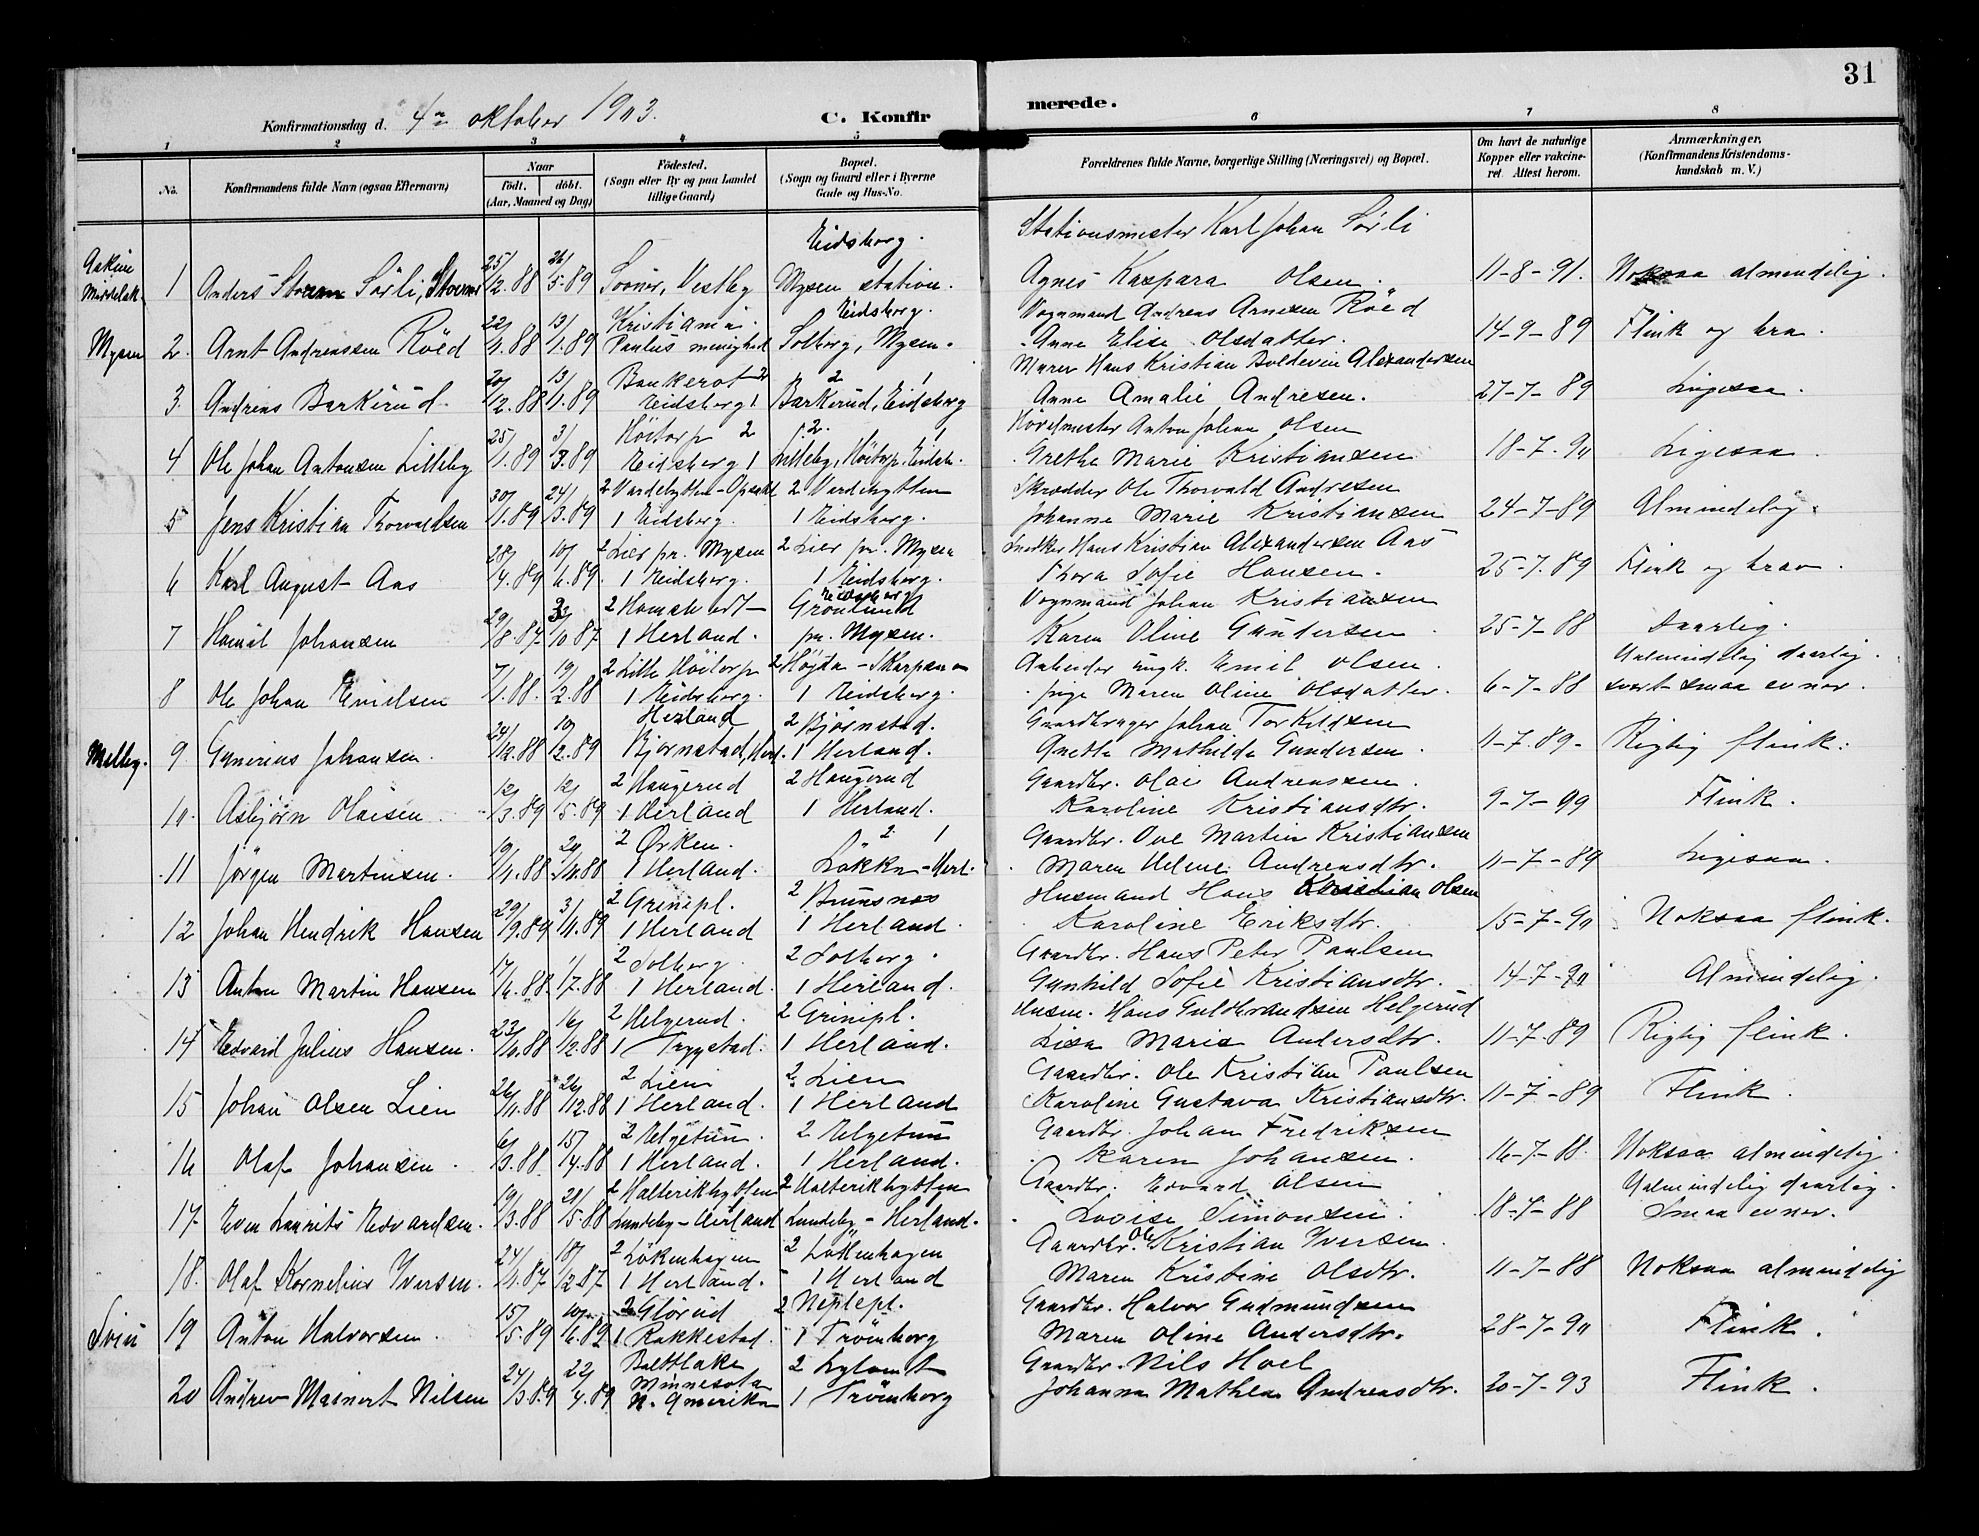 31
Konfirmationsdag d. 4de oktober 1903.
C. Konfirmerede.
1 2 3 4 5 6 7 8
No.
Konfirmandens fulde Navn (ogsaa Efternavn)
Naar
födt. döbt.
(Aar, Maaned og Dag)
Födested.
(Sogn eller By og paa Landet
tillige Gaard)
Bopæl.
(Sogn og Gaard eller i Byerne
Gade og Hus-No.
Forældrenes fulde Navne, borgerlige Stilling (Næringsvei) og Bopæl.
Om havt de naturlige
Kopper eller vakcine-
ret. Attest herom.
Anmærkninger,
(Konfirmandens Kristendoms-
kundskab m. V.)
Eidsberg. Stationsmester Karl Johan Sørli
1 Anders Storm Sörli, 25/12.88 26/5.89 Sooner, Vestby Mysen station. Agnes Kaspara Olsen. 11-8-91. Noksaa almindelig.
Kristiania. Eidsberg. Vognmand Andreas Arnesen Röed
Mysen 2. Arnt Andreassen Röed 22/11.88 13/1.89 Paulus menighed Solborg, Mysen. Anne Elise Olsdatter. 14-9-89 Flink og bra.
Bankerot 2 2 1 Murer Hans Kristian Boldevin Alexandersen
3. Andreas Barkerud. 20/12.88 13/1.89 Eidsberg 1 Barkerud, Eidsberg Anne Amalie Andresen. 27-7-89 Ligesaa.
Höitorp 2 2. 1 Anton Johan Olsen
4 Ole Johan Antonsen Lilleby 25/1.89 3/3.89 Eidsberg 1 Lilleby, Höitorp, Eidsb. Grethe Marie Kristiansen 18-7-90 Ligesaa.
2 Vardebytten-Opsahl 2 Vardebytten Skrædder Ole Thorvald Andresen
5 Jens Kristian Thorvaldsen 30/1.89 24/3.89 1 Eidsberg. 1 Eidsberg. Johanne Marie Kristiansen 24-7-89 Almindelig.
2 Lier pr. Mysen 2 Lier pr. Mysen Snedker Hans Kristian Alexandersen Aas
6 Karl August Aas 28/4.89 10/6.89. 1 Eidsberg. 1 Eidsberg. Thora Sofie Hansen. 25-7.89 Flink og brav.
2 Grönlund Eidsberg Vognmand Johan Kristiansen
7 Johansen 29/8.87 /10.87 1 Herland. pr. Mysen. Karen Oline Gundersen 25-7-88 Daarlig.
2 Lille Höitorp 2 Höyda - Skarpsno Arbeider ungk. Emil Olsen. Almindelig daarlig.
8 Ole Johan Emilsen 7/1.88. 19/2.88 1 Eidsberg. 1 Eidsberg. pige Maren Oline Olsdatter. 6-7-88 svært smaa evner.
Herland 2 Björnstad. Gaardbruger Johan Torkildsen
Melleg. 9 Gunerius Johansen. 24/12.88 10/2.89 Björnstad, Herl. 1 Herland. Anette Mathilde Gundersen. 11-7.89- Rigtig flink.
2 Haugerud 2 Haugerud Gaardbr. Olai Andreassen.
10. Asbjörn Olaisen. 12/3.89 12/5.89 1 Herland 1 Herland. Karoline Kristiansdtr. 9-7-99 Flink.
2 Ørken. 2 1 Gaardbr. Ove Martin Kristiansen
11 Jörgen Martinsen. 19/1.88 1 Herland. Lökka-Herl. Maren Helene Andreasdtr. 11-7-89 Ligesaa.
2 Grinepl. 2 Brunsnes Husmand Hans Kristian Olsen
12 Johan Hendrik Hansen 29/9.89 3/11.89 1 Herland 1 Herland. Karoline Eriksdtr. 15-7-90 Noksaa flink.
2 Solberg. 2 Solberg. Gaardbr. Hans Peter Paulsen
13 Anton Martin Hansen 17/6.88. 1/7.88 1 Herland. 1 Herland. Gunhild Sofie Kristiansdtr. 14-7-90 Almindelig.
2 Helgerud. 2 Grinepl. Husm. Hans Guldbrandsen Helgerud
14 Edvard Julius Hansen. 23/10.88 16/12.88 1 Trygstad. 1 Herland. Lisa Marie Andersdtr. 11-7.89 Rigtig flink.
2 Lien 2. Lien Gaardbr. Ole Kristian Paulsen
15 Johan Olsen Lien 26/11.88 26/12.88 1 Herland. 1 Herland Karoline Gustava Kristiansdtr. 11-7-89 Flink.
2 Helgetun. 2 Helgetun Gaardbr. Johan Fredriksen
16 Olaf Johansen. 6/3.88 15/4.88 1 Herland. 1 Herland. Karen Johansen. 16-7-88. Noksaa almindelig.
2 Halterikhytten 2 Halterikhytten Gaardbr. Edvard Olsen Almindelig daarlig.
17 Even Laurits Edvardsen. 19/3.88 21/5.88 Lundeby-Herland Lundeby-Herland. Lovise Simonsen. 18-7-88 Smaa evner.
2 Lökenhagen 2 Lökenhagen Gaardbr. Ole Kristian Iversen.
18. Olaf Kornelius Iversen. 24/11.87 18/12.87 1 Herland. 1 Herland Maren Kristine Olsdtr. 11-7-88 Noksaa almindelig
2 Glörud 2 Neplepl. Gaardbr. Halvor Gudmundsen
19 Anton Halvorsen. 15/5.89 10/6.89 1 Rakkestad. 1 Trömborg Maren Oline Andersdtr. 28-7-90 Flink.
Gaardbr. Nils Hoel
20 Andrev Meinert Nilsen 24/3.89 22/4.89 Minnesota N. Amerika 1 Trömborg Johanna Mathea Andreasdtr. 20-7-93 Flink.